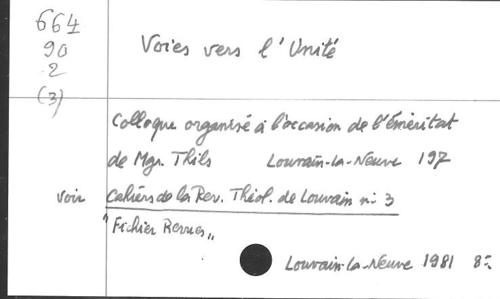 664
90
2
(3)
Voies vers l'Unité
Colloque organisé à l'occasion de l'Éméritat
de Mgr. Thils Louvain-la-Neuve 197
voir Cahiers de la Rev. Théol. de Louvain n: 3
"Fichier Revues"
Louvain-la-Neuve 1981 8: